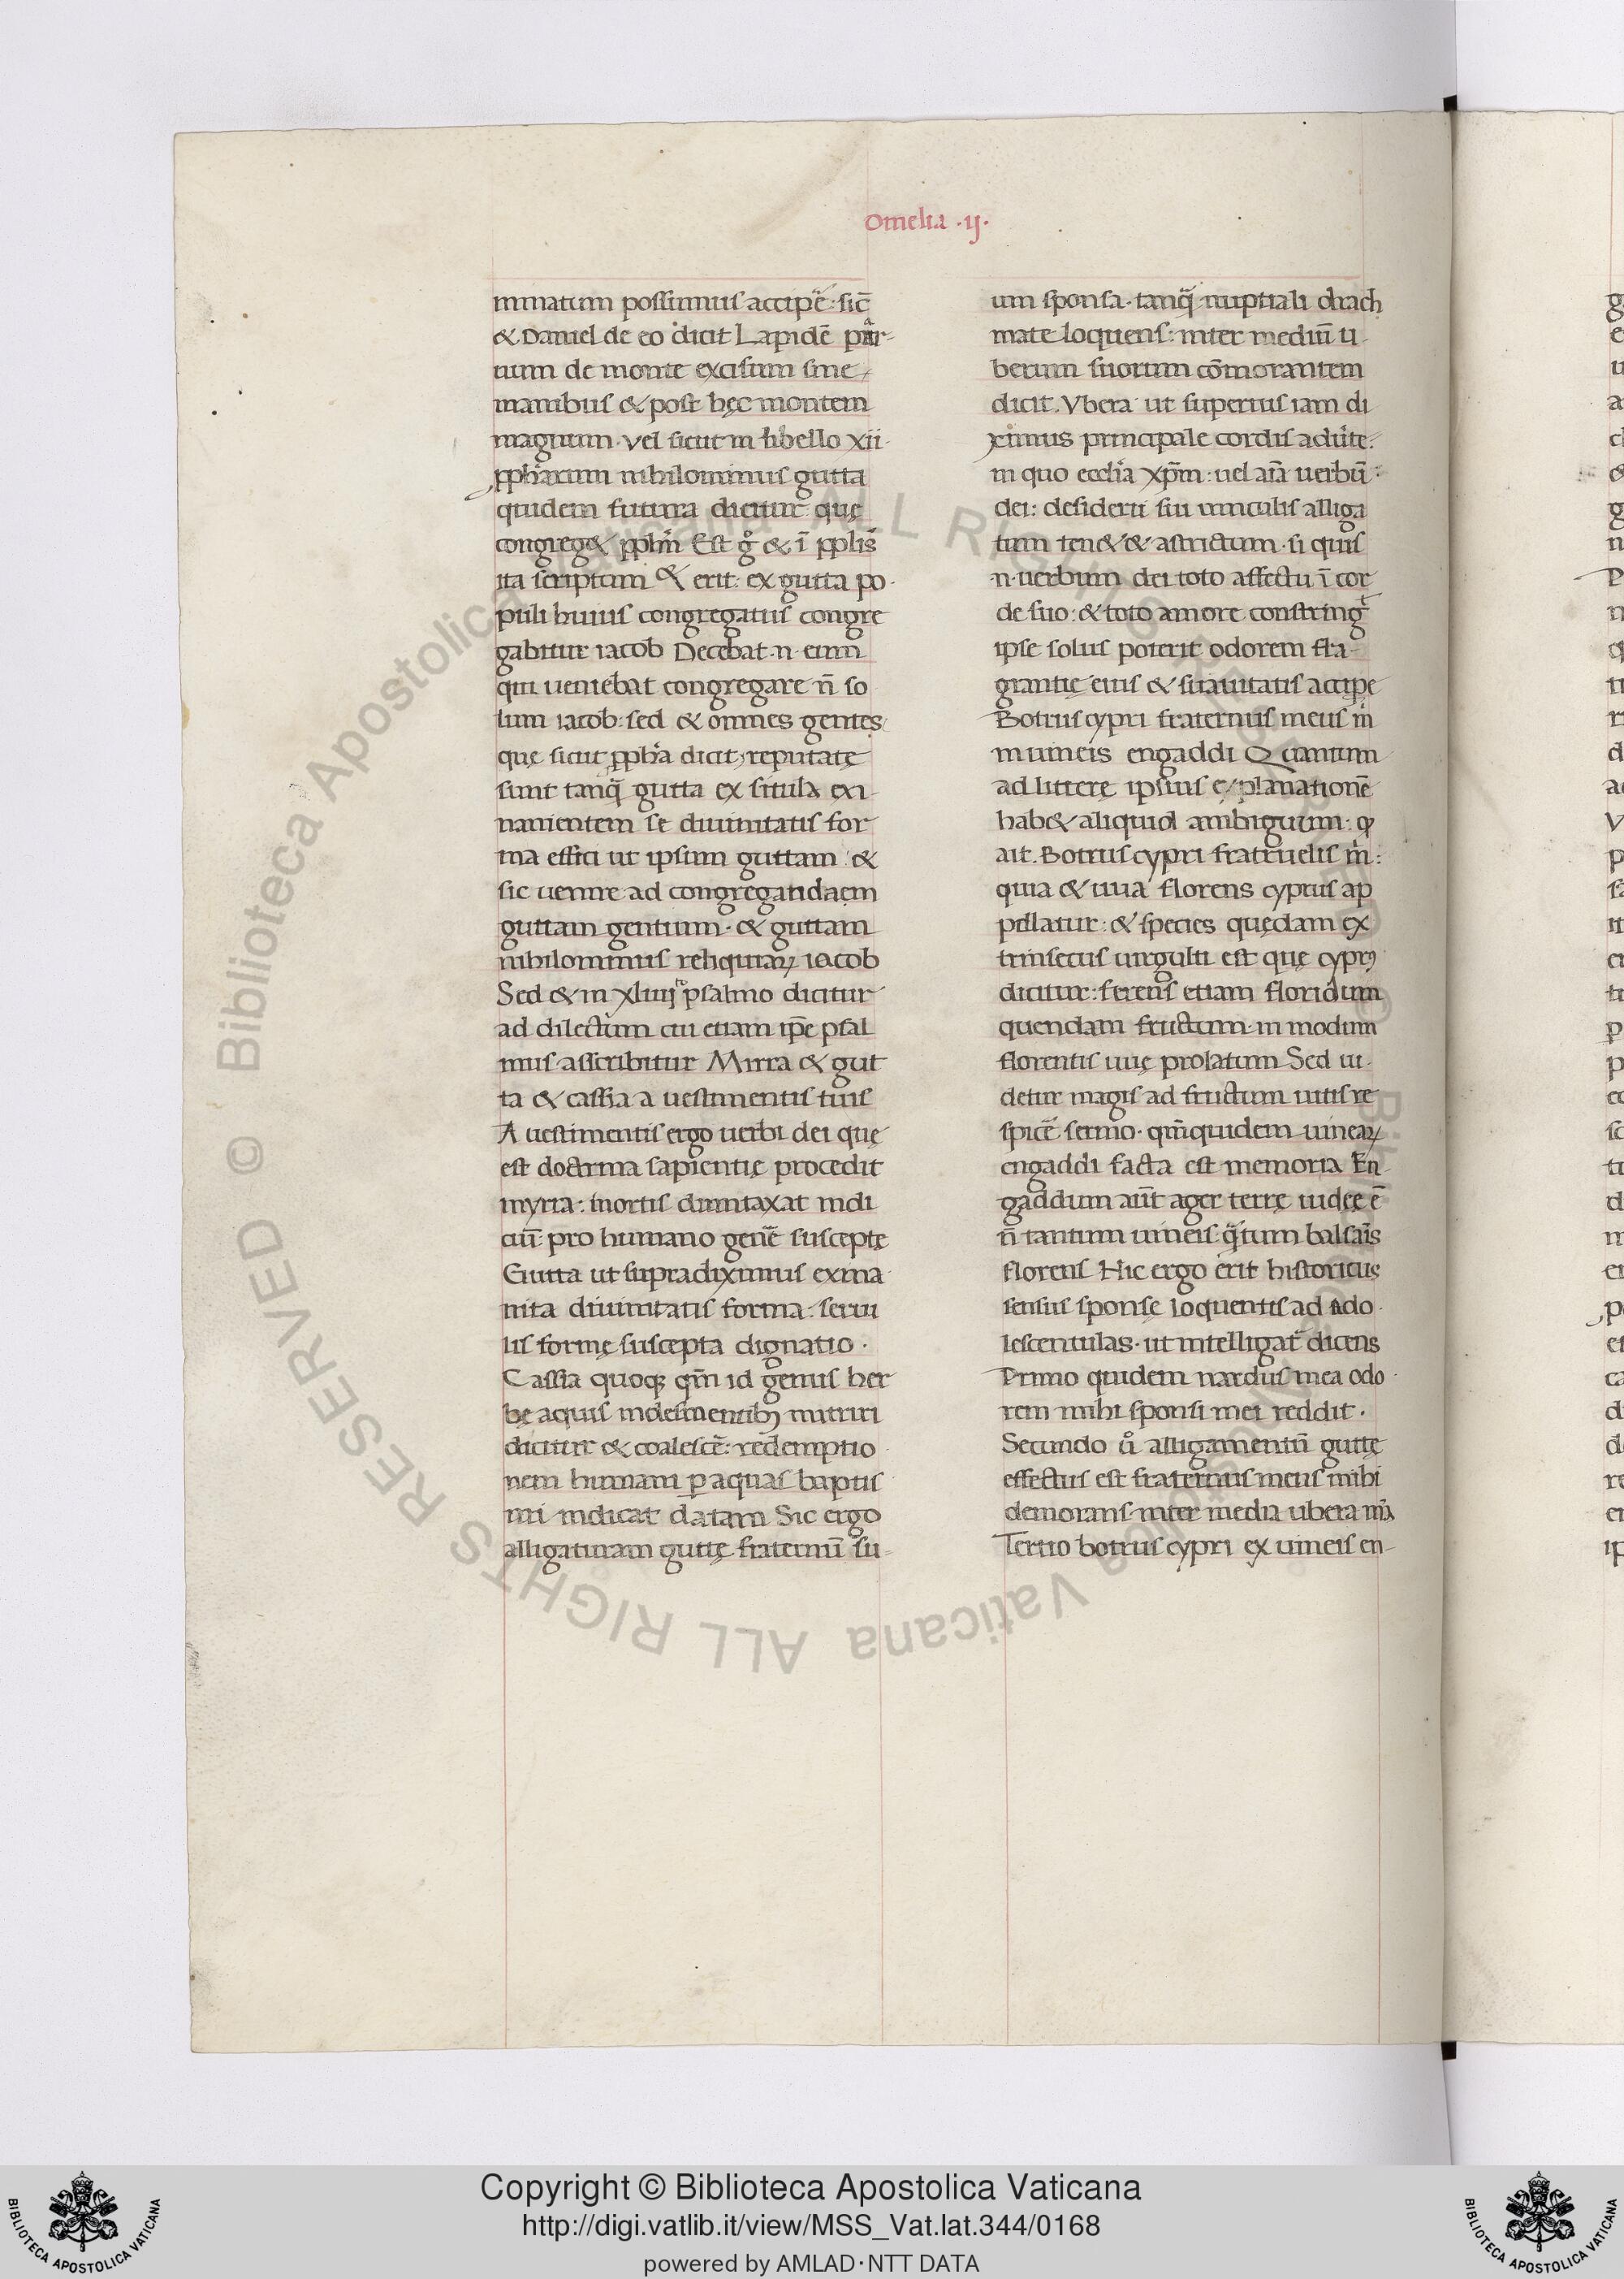 omelia .ij.
minatum possimus accipẽ. sic̃
& Daniel de eo dicit Lapidẽ par-
uum de monte excisum sine
manibus & post hęc montem
magnum. vel sicut in libello xii.
ꝓphãrum nihilominus gutta
quidem futura dicitur quę
congreg& pplm̃ Est gͦ & ĩ pplis
ita scriptum & erit: ex gutta po-
puli huius congregatus congre
gabitur iacob Decebat .n. eum
qui ueniebat congregare ñ so
lum iacob: sed & omnes gentes
quę sicut ꝓpha dicit, reputatę
sunt tanq̃ gutta ex situla exi
nanientem se diuinitatis for
ma effici ut ipsum guttam &
sic uenire ad congregandaem
guttam gentium. & guttam
nihilominus reliquiaꝝ iacob
Sed & in xliiij psalmo dicitur
ad dilectum cui etiam ip̃e psal
mus asscribitur Mirra & gut
ta & cassia a uestimentis tuis
A uestimentis ergo uerbi dei quę
est doctrina sapientię procedit
myrra: mortis dumtaxat indi
ciũ: pro humano genẽ susceptę
Gutta ut supradiximus exina
nita diuinitatis forma: serui
lis formę suscepta dignatio.
Cassia quoqꝫ qm̃ id genus her
bę aquis indesinentibꝫ nutriri
dicitur & coalescẽ: redemptio
nem humanam ꝑ aquas baptis
mi indicat datam Sic ergo
alligaturam guttę fraternũ su-
um sponsa. tanq̃ nuptiali drach
mate loquens: inter mediũ u-
berum suorum cõmorantem
dicit. Vbera ut superius iam di
ximus principale cordis aduĩte:
in quo eccl̃ia xp̃m: uel aĩa uerbũ
dei: desiderii sui uinculis alliga
tum ten& & astrictum. si quis
.n. uerbum dei toto affectu ĩ cor
de suo: & toto amore constring̃
ipse solus poterit odorem fla-
grantię eius & suauitatis accipe
Botrus cypri fraternus meus m̃
in uineis engaddi Quantum
ad litterę ipsius explanationẽ
hab& aliquid ambiguum. qꝫ
ait. Botrus cypri fratruelis m̃:
quia & uua florens cyprus ap
pellatur: & species quędam ex
trinsecus uirgulti est quę cyprꝰ
dicitur: ferens etiam floridum
quendam fructum in modum
florentis uuę prolatum Sed ui-
detur magis ad fructum uitis re
spicẽ sermo. qm̃quidem uineaꝝ
engaddi facta est memoria En-
gaddum aũt ager terrę iudęę ẽ
ñ tantum uineis: q̃tum balsaĩs
florens Hic ergo erit historicus
sensus sponsę loquentis ad ado-
lescentulas. ut intelligat̃ dicens
Primo quidem nardus mea odo-
rem mihi sponsi mei reddit.
Secundo ũ alligamentũ guttę
effectus est fraternus meus mihi
demorans inter media ubera m̃a
Tertio botrus cypri ex uineis en-
Biblioteca Apostolica Vaticana ALL RIGHTS RESERVED ©
Copyright © Biblioteca Apostolica Vaticana
http://digi.vatlib.it/view/MSS_Vat.lat.344/0168
powered by AMLAD·NTT DATA
BIBLIOTECA APOSTOLICA VATICANA
BIBLIOTECA APOSTOLICA VATICANA